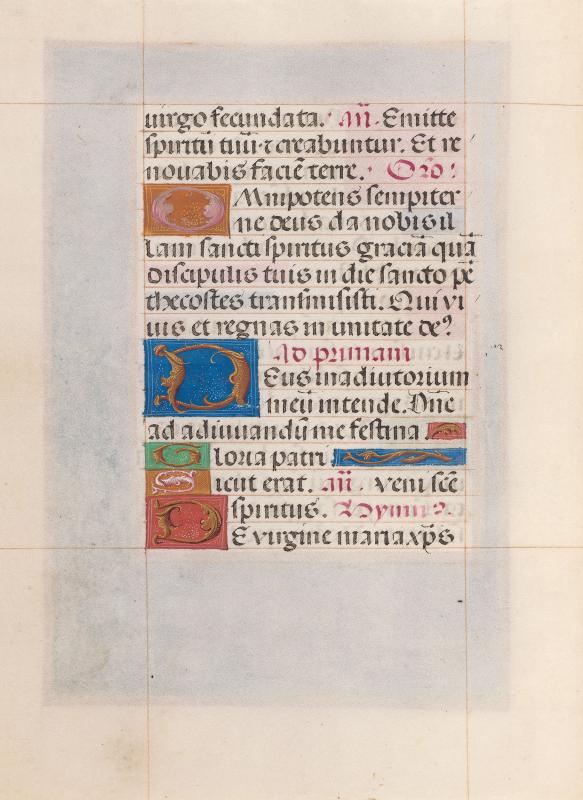 uirgo fecundata. añ. Emitte
spiritū tuū ⁊ creabuntur. Et re
nouabis faciē terre. Oŕo.
OMnipotens sempiter
ne deus da nobis il
lam sancti spiritus graciā quā
discipulis tuis in die sancto pē
thecostes transmisisti. Qui vi
uis et regnas in unitate deꝰ
Ad primam
DEus in adiutorium
meū intende. Dn̄e
ad adiuuandū me festina.
Gloria patri.
Sicut erat. añ. veni scē
spiritus. Hymnꝰ.
DE virgine maria xp̄s